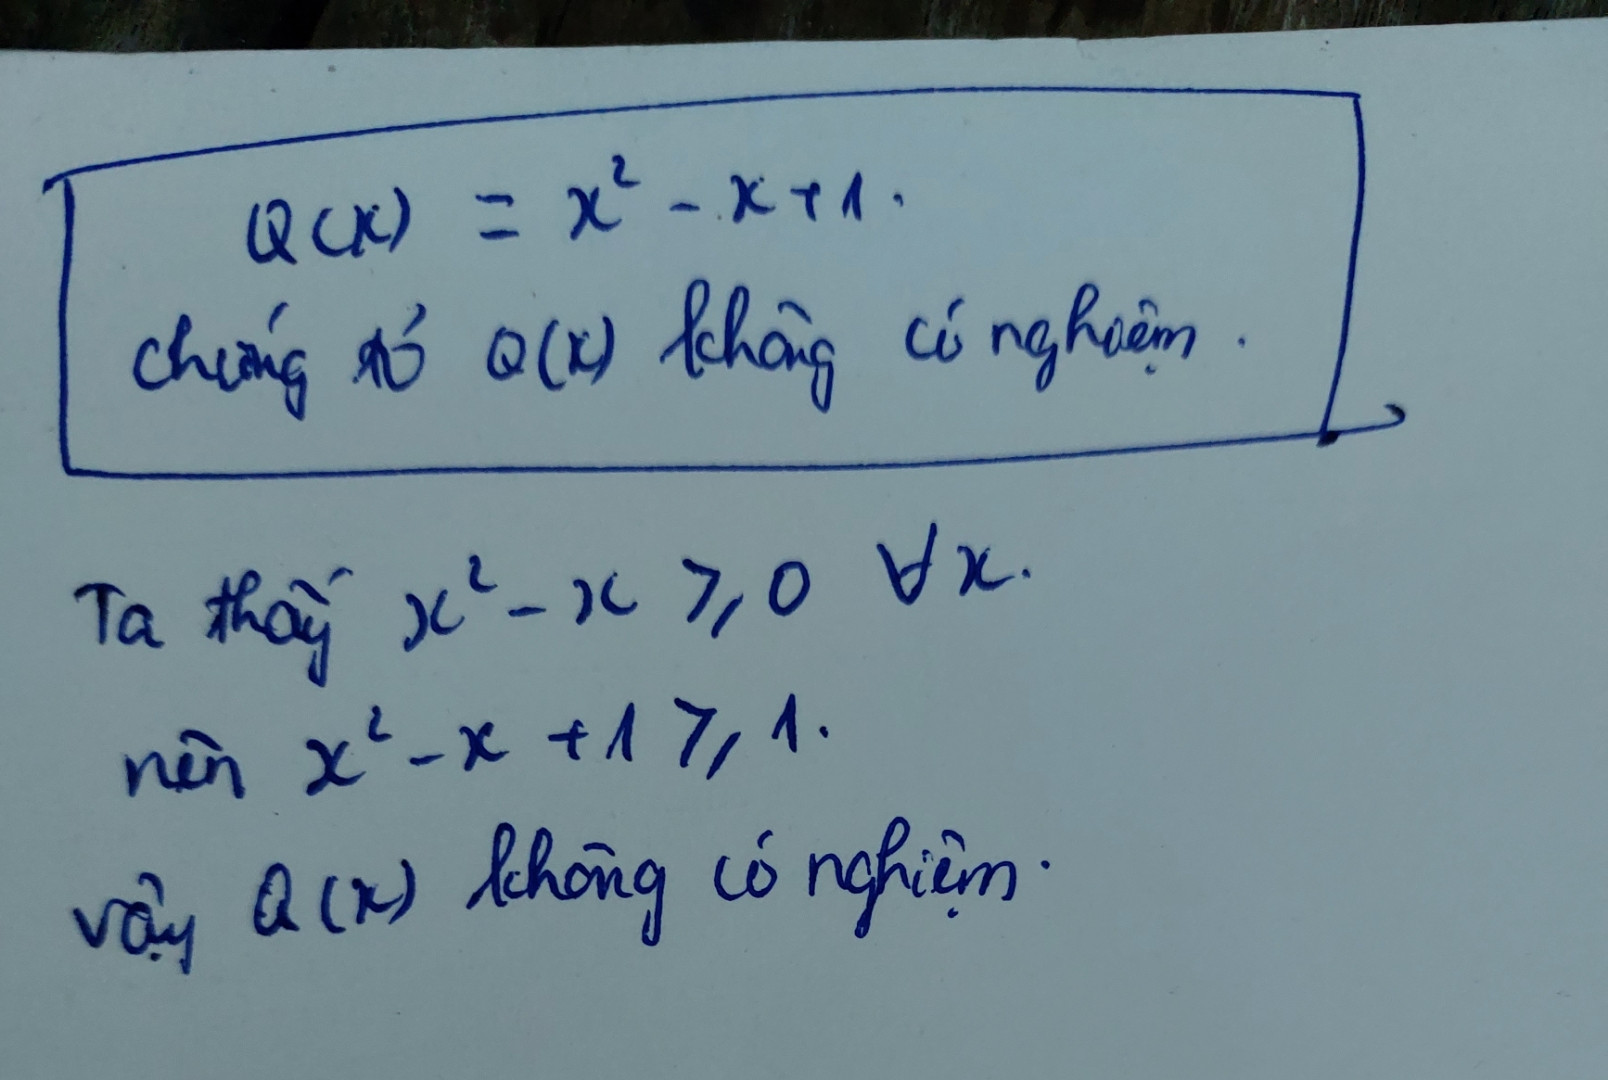 Q(x) = x² - x + 1.
chứng tỏ Q(x) không có nghiệm.
Ta thấy x² - x ≥ 0 ∀x.
nên x² - x + 1 ≥ 1.
vậy Q(x) không có nghiệm.